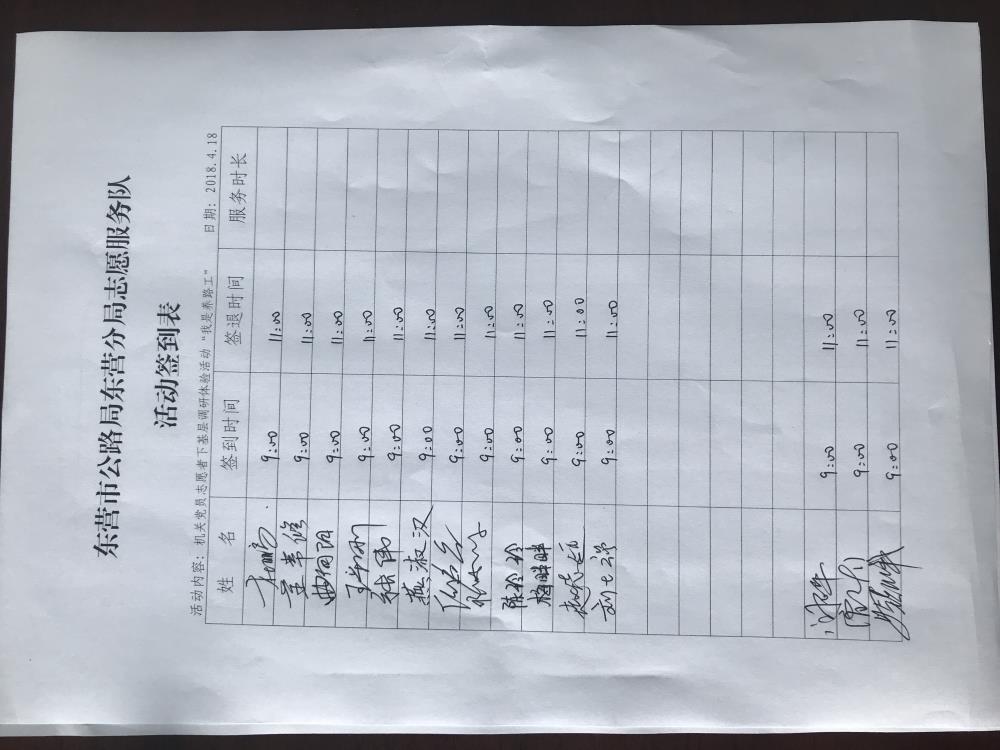 东营市公路局东营分局志愿服务队
活动签到表
活动内容：机关党员志愿者下基层调研体验活动“我是养路工” 日期：2018.4.18
姓 名 签到时间 签退时间 服务时长
9:00 11:00
9:00 11:00
曲向阳 9:00 11:00
9:00 11:00
9:00 11:00
燕淑汉 9:00 11:00
9:00 11:00
9:00 11:00
陈珍珍 9:00 11:00
梅畔畔 9:00 11:00
9:00 11:00
9:00 11:00
9:00 11:00
9:00 11:00
9:00 11:00